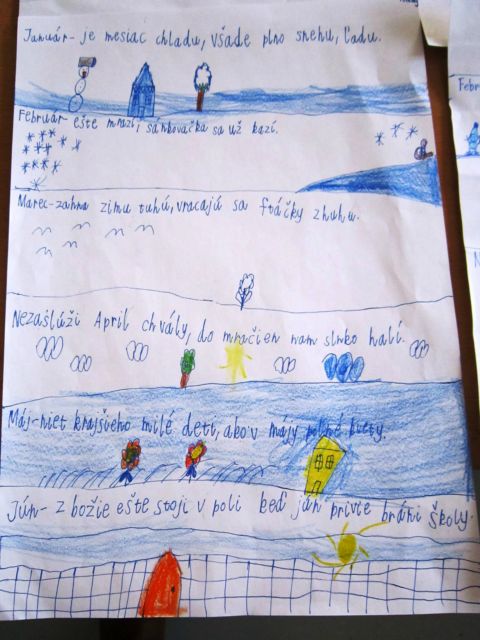 Január- je mesiac chladu, všade plno snehu, ľadu.
Február ešte mrazí, sánkovačka sa už kazí.
Marec-zahna zimu tuhú, vracajú sa ftáčky z juhu.
Nezaslúži April chvály, do mračien nam slnko halí.
Máj-niet krajšieho milé deti, ako v máji poľné kvety.
Jún- z božie ešte stoji v poli keď ján privrie bráni školy.
Febru